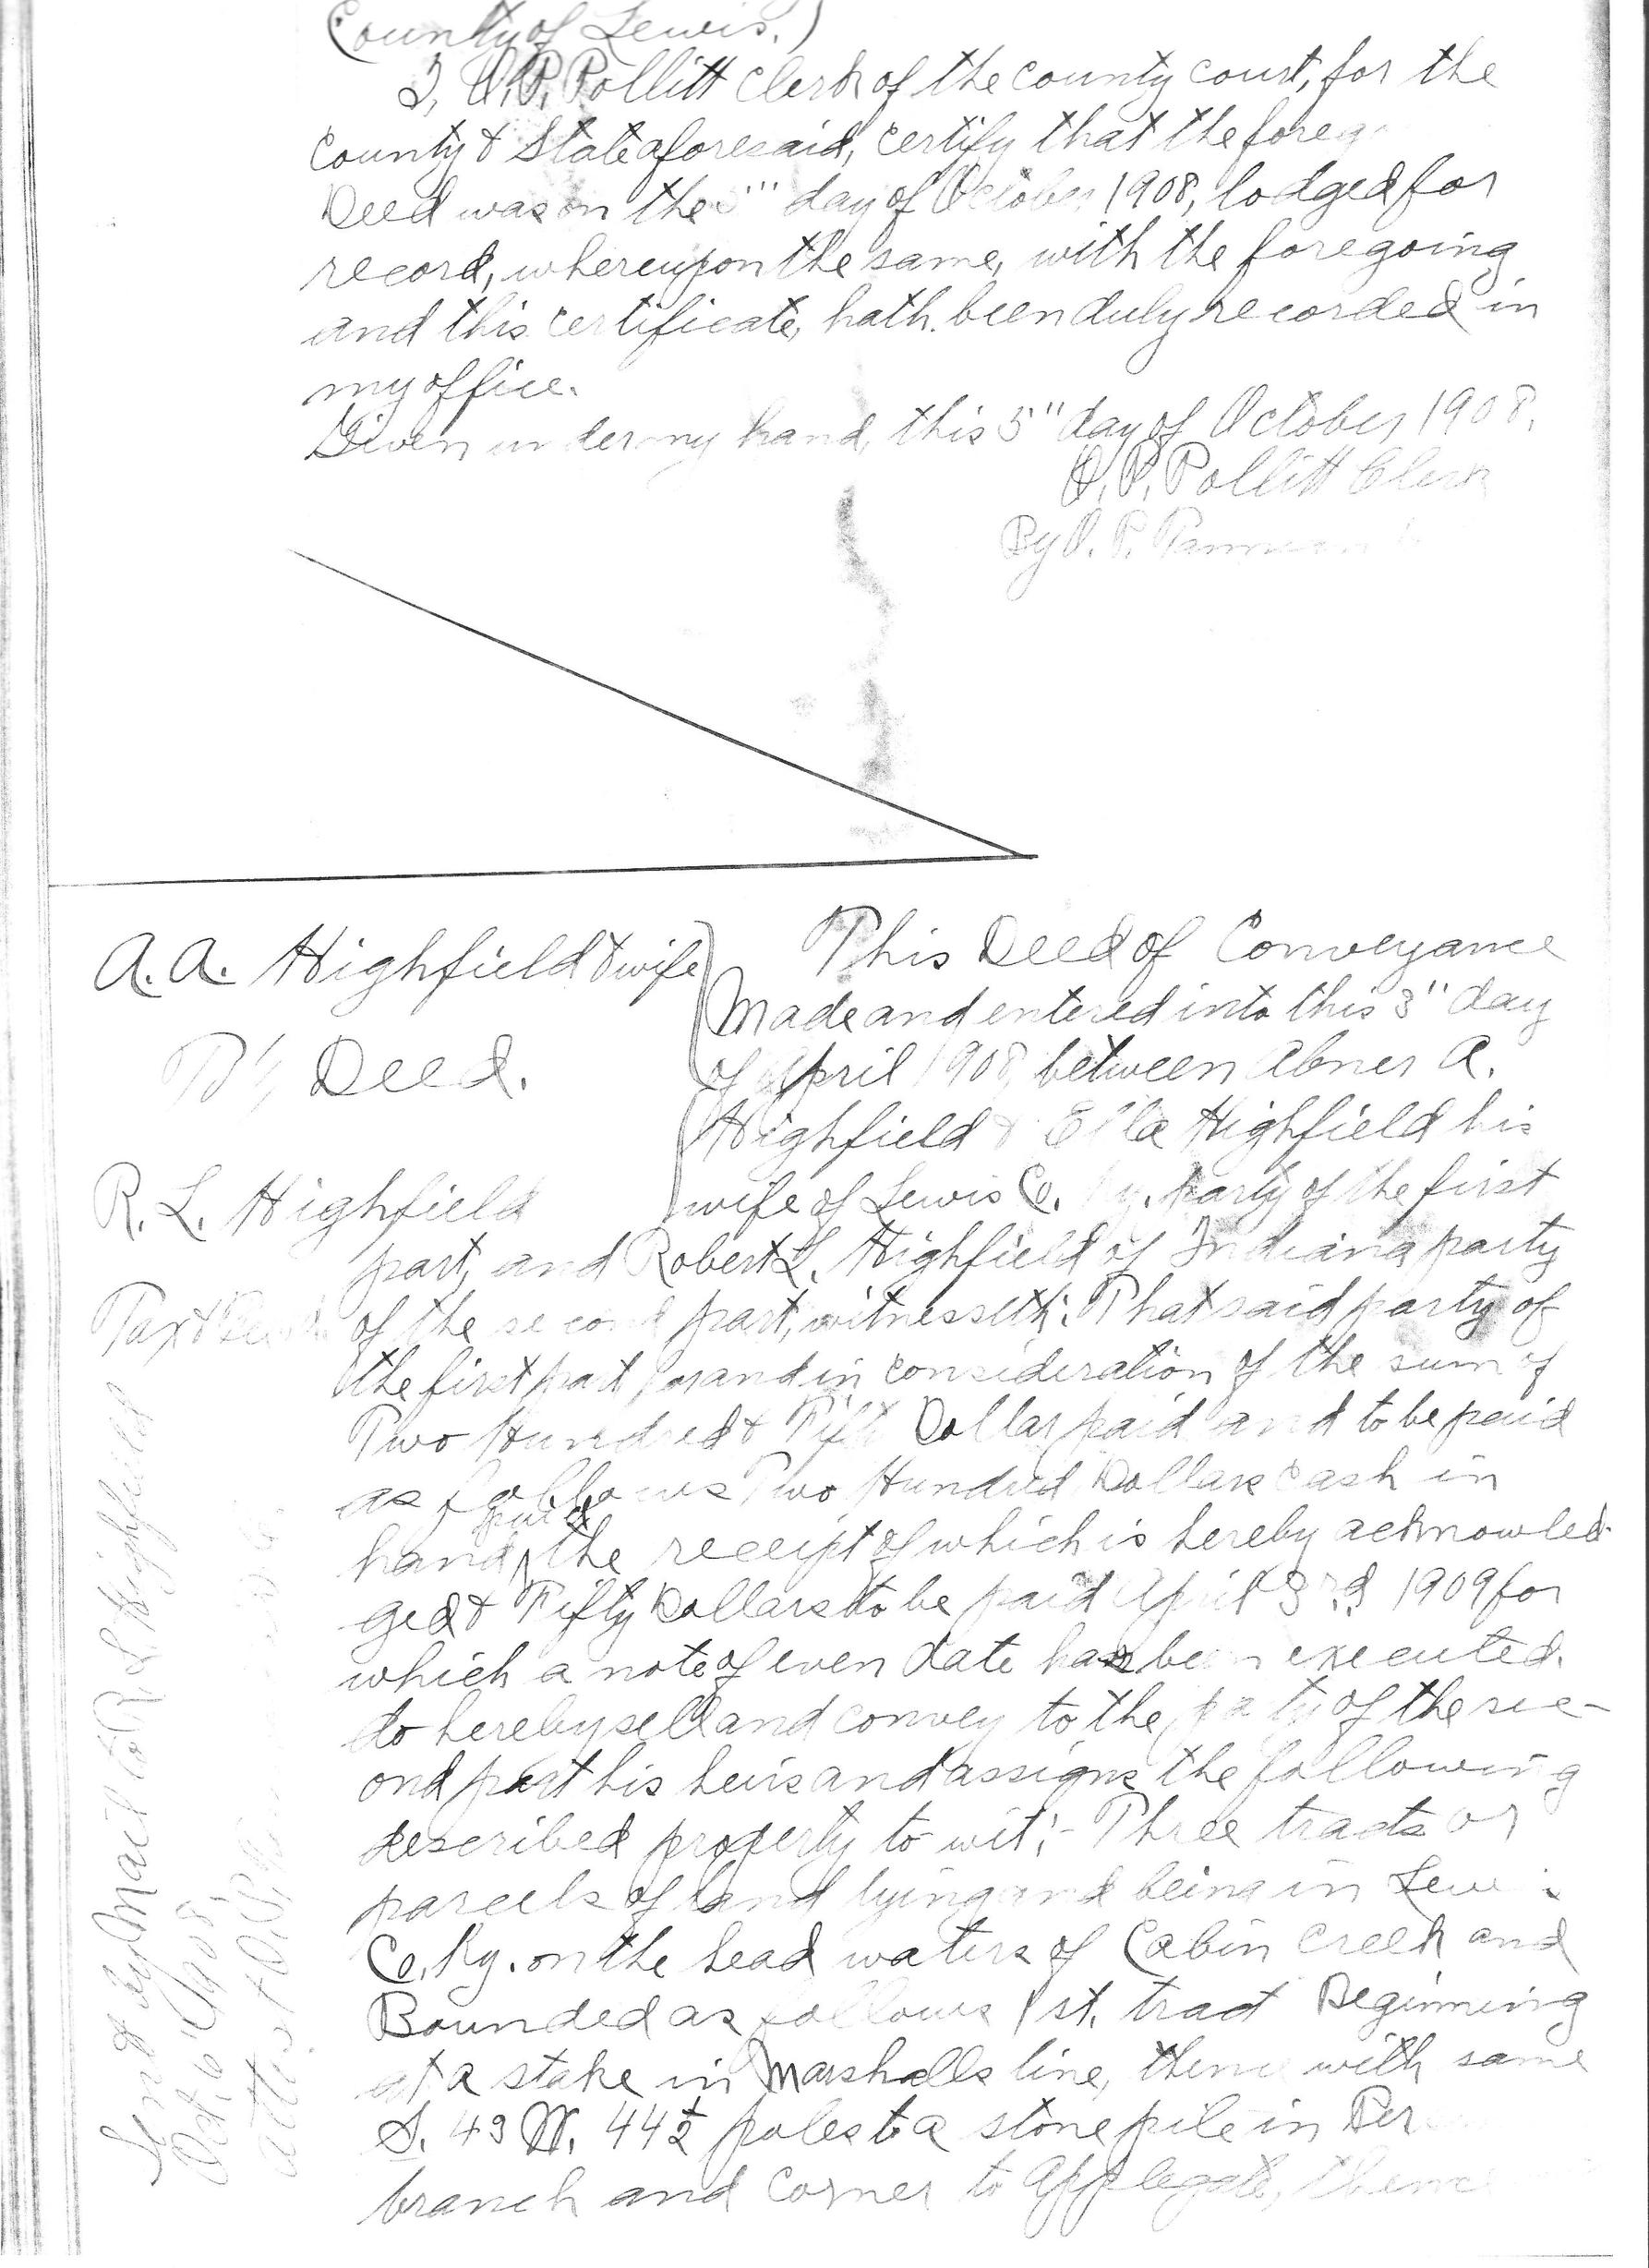 County of Lewis.)
I, O.P. Pollitt Clerk of the county court, for the
county & State aforesaid, certify that the
Deed was on the day of October 1908, lodged for
record, whereupon the same, with the foregoing
and this certificate, hath been duly recorded in
my office.
Given under my hand, this 5" day of October 1908.
O.P. Pollitt Clerk
By O.P.
A. A. Highfield & wife
Deed.
R. L. Highfield
Tax &
This Deed of Conveyance
Made and entered into this 3" day
of April 1908, between Abner A.
Highfield & Ella Highfield his
wife of Lewis Co. Ky. party of the first
part, and Robert L. Highfield of Indiana party
of the second part, witnesseth: That said party of
the first part for and in consideration of the sum of
Two Hundred & Fifty Dollar paid and to be paid
as follows Two Hundred Dollars cash in
hand paid the receipt of which is hereby acknowled-
ged & Fifty Dollars to be paid April 3rd 1909 for
which a note of even date has been executed.
do hereby sell and convey to the party of the sec-
ond part his heirs and assigns the following
described property to wit;- Three tracts or
parcels of land lying and being in Lewis
Co, Ky. on the head waters of Cabin Creek and
Bounded as follows 1st. tract Beginning
at a stake in Marshalls line, thence with same
S. 49 W. 44½ poles to a stone pile in
branch and corner to Applegate, thence
Sent by Mail to R. L. Highfield
Oct. 6" 1908,
attest O.P.